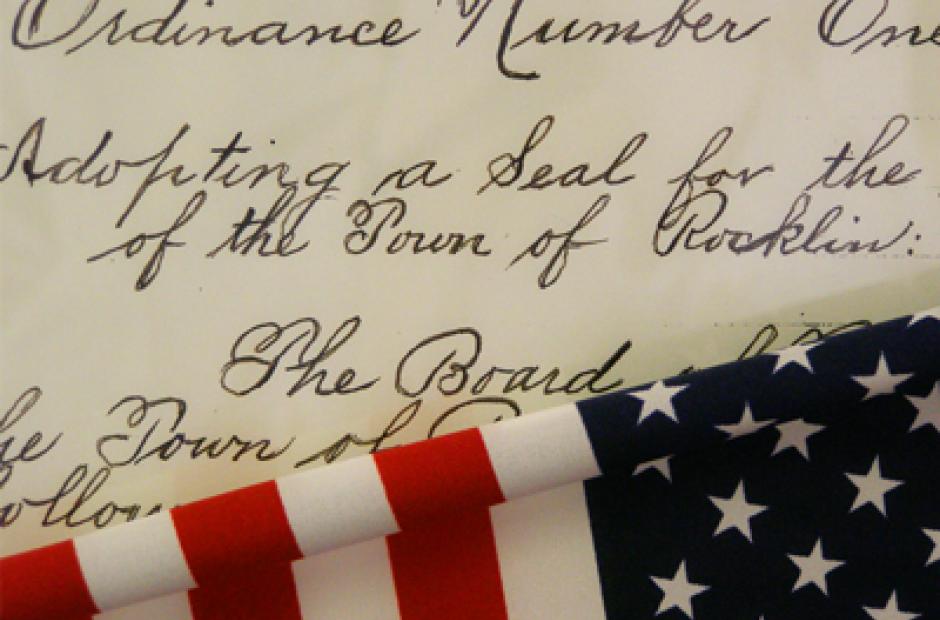 Ordinance Number One
Adopting a Seal for the
of the Town of Rocklin:
The Board of
he Town of
ollow